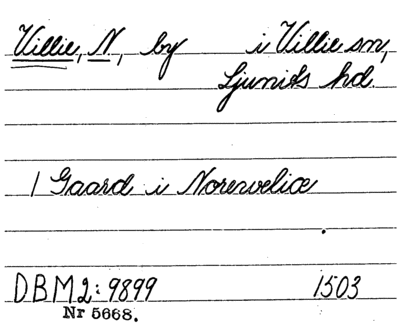 Villie, N., by i Villie sn,
Ljunits hd.
1 Gaard i Norreveliæ
DBM2: 9899 1503
Nr 5668.